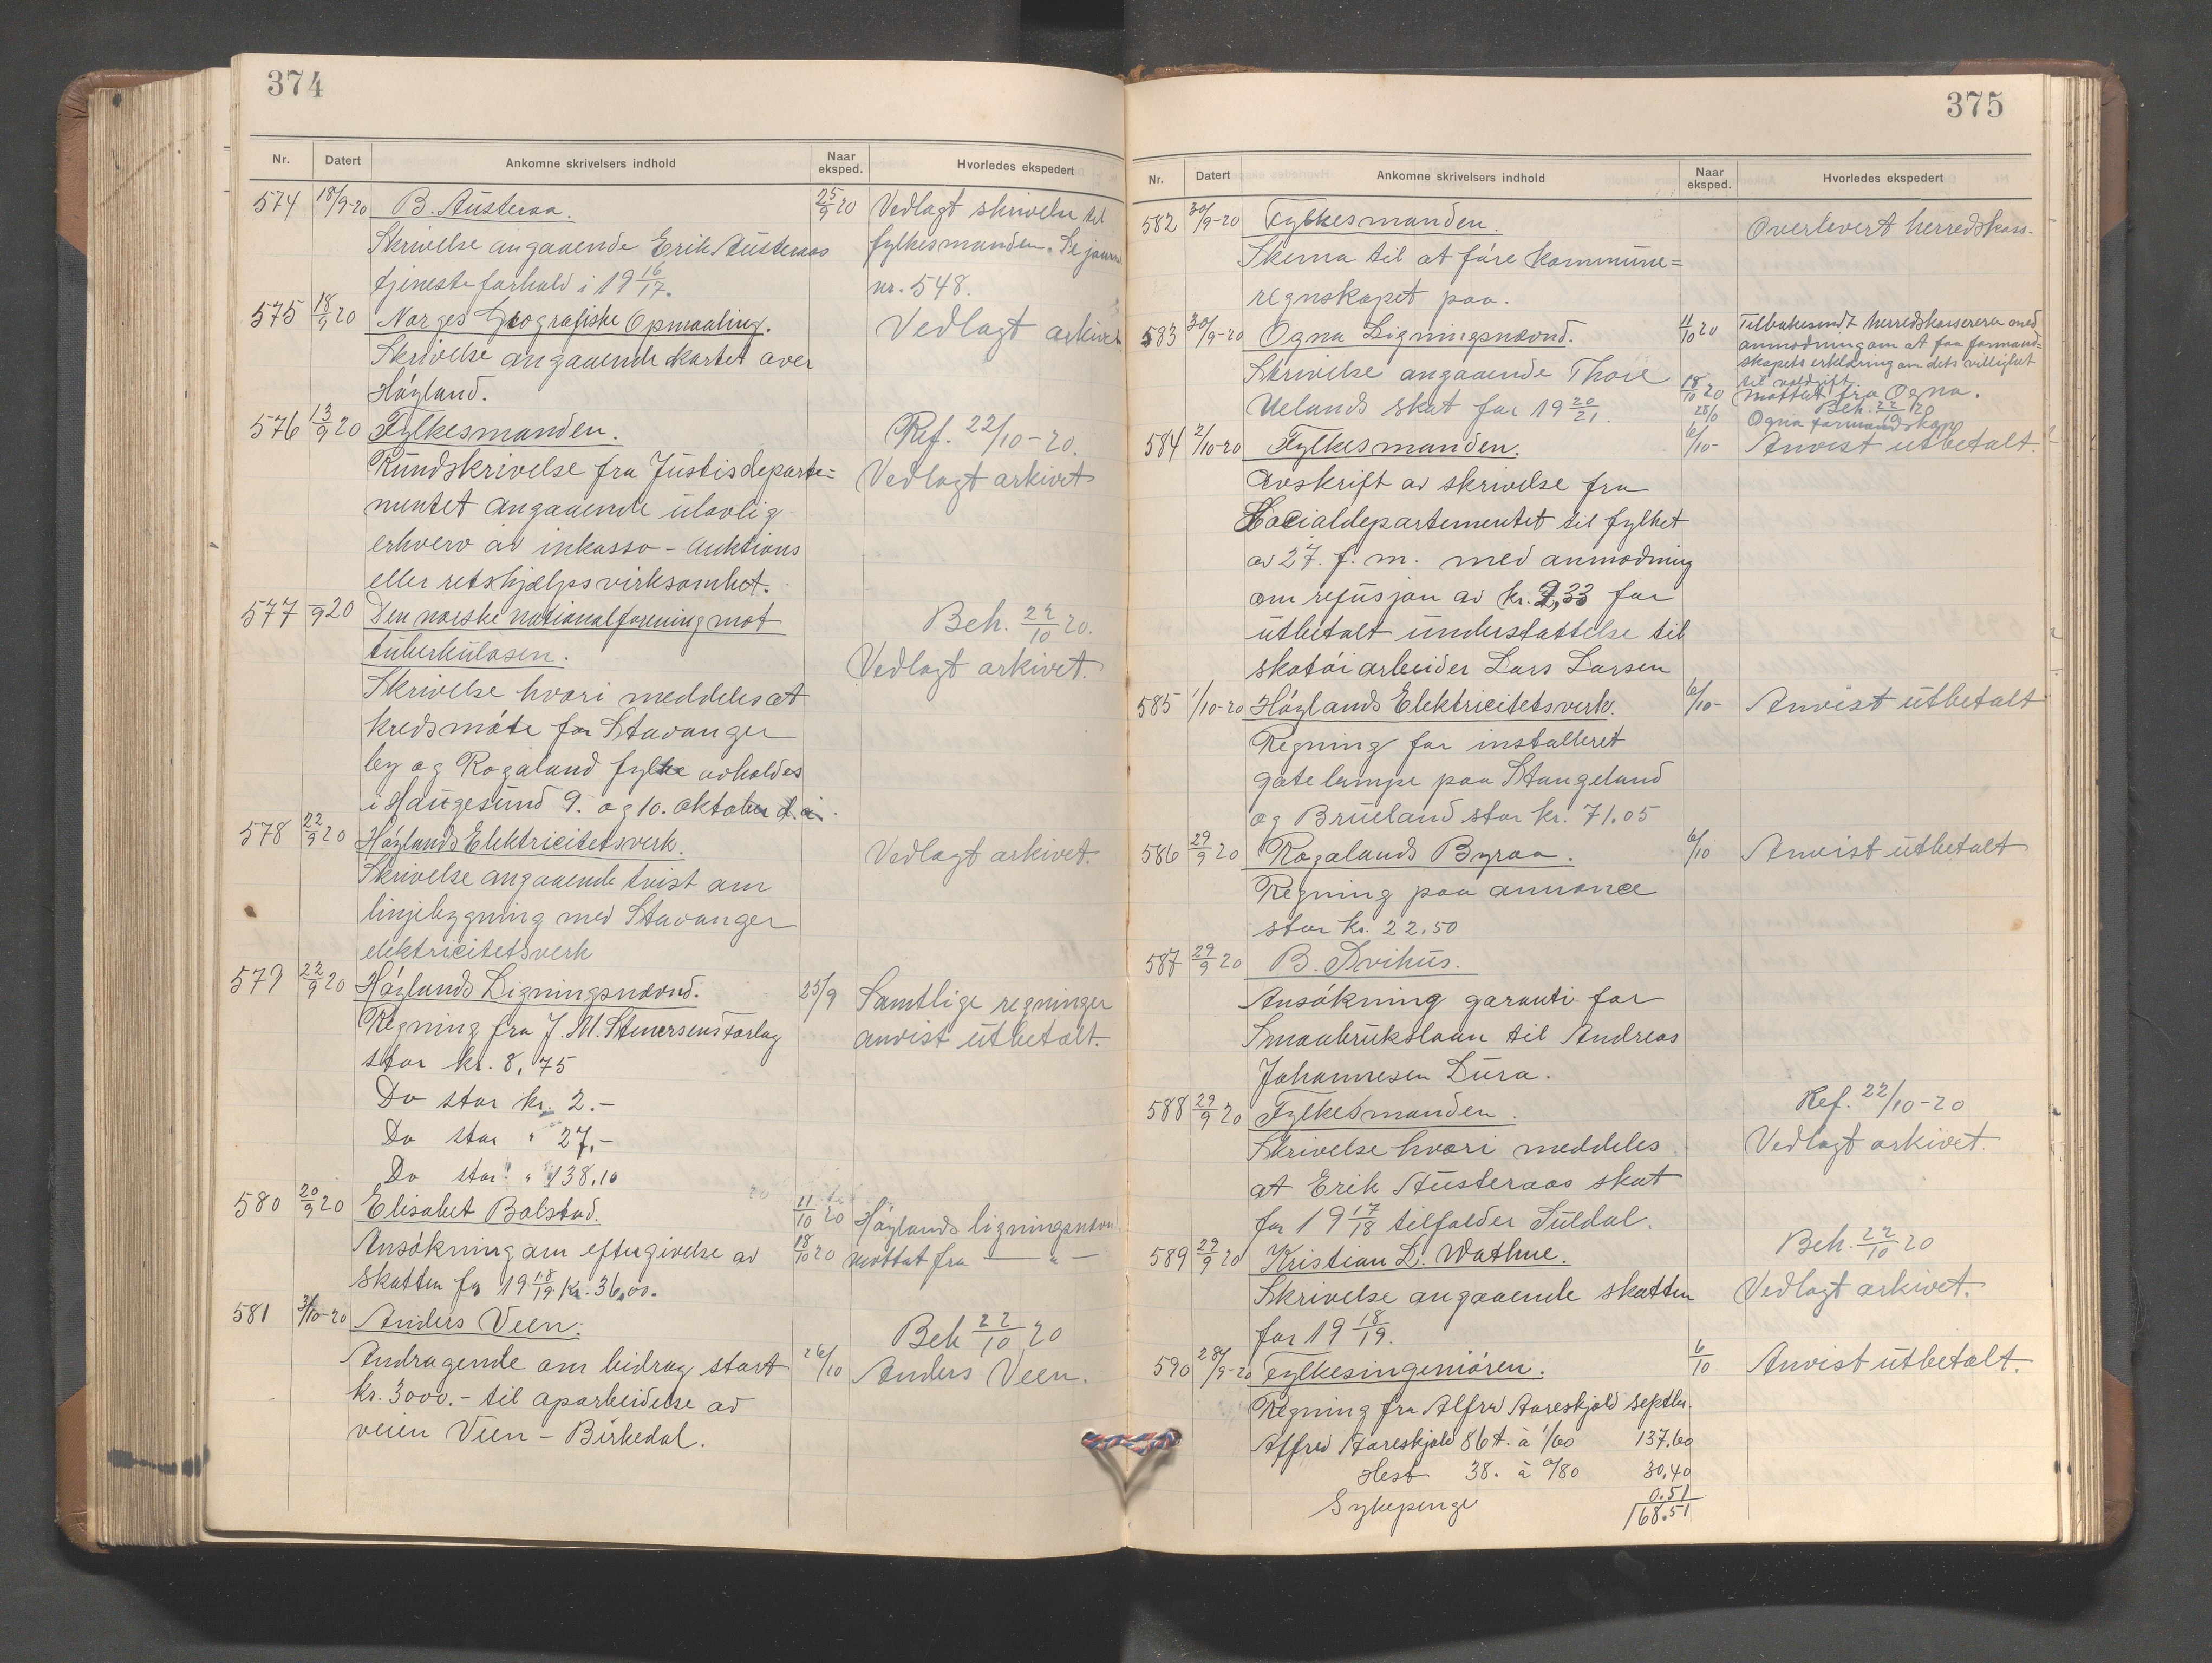 374
Nr. Datert Ankomne skrivelsers indhold Naar eksped. Hvorledes ekspedert
574 18/9-20 B. Austeraa. 25/9 20 Vedlagt skrivelse til
Skrivelse angaaende Erik Austeraas fylkesmanden. Se journ
tjenesteforhold i 19 16/17. nr. 548.
575 18/9 20 Norges Geografiske Opmaaling. Vedlagt arkivet
Skrivelse angaaende kartet over
Höyland.
576 13/9 20 Fylkesmanden. Ref. 22/10-20.
Rundskrivelse fra Justisdeparte= Vedlagt arkivet
mentet angaaende ulovlig
erhverv av inkasso-auktions
eller retshjælpsvirksomhet.
577 –/9 20 Den norske nationalforening mot Beh. 22/10 20.
tuberkulosen. Vedlagt arkivet.
Skrivelse hvori meddeles at
kredsmöte for Stavanger
by og Rogaland fylke avholdes
i Haugesund 9. og 10. oktober d.a.
578 22/9 20 Höylands Elektricitetsverk. Vedlagt arkivet.
Skrivelse angaaende tvist om
linjebygning med Stavanger
elektricitetsverk
579 22/9 20 Höylands Ligningsnævnd. 25/9 Samtlige regninger
Regning fra J. M. Stenersens Forlag anvist utbetalt.
stor kr. 8,75
Do stor kr. 2.-
Do stor " 27.-
Do stor " 138,10
580 20/9 20 Elisabet Bolstad. 11/10 20 Höylands ligningsnævn
Ansökning om eftergivelse av 18/10 20 mottat fra — " —
skatten for 19 18/19 kr. 36,00.
581 3/10-20 Anders Veen. Beh 22/10 20
Andragende om bidrag stort 26/10 Anders Veen.
kr. 3000.- til oparbeidelse av
veien Veen - Birkedal.
375
Nr. Datert Ankomne skrivelsers indhold Naar eksped. Hvorledes ekspedert
582 30/9-20 Fylkesmanden. Overlevert herredskass.
Skema til at före kommune=
regnskapet paa.
583 30/9-20 Ogna Ligningsnævnd. 11/10 20 Tilbakesendt herredskassereren med
anmodning om at faa formand=
skapets erklæring om dets villighet
til voldgift.
Skrivelse angaaende Thore 18/10 20 mottat fra Ogna.
Beh. 22/10 20
Uelands skat for 19 20/21. 28/10 Ogna formandskap
584 2/10-20 Fylkesmanden. 6/10- Anvist utbetalt.
Avskrift av skrivelse fra
Socialdepartementet til fylket
av 27. f. m. med anmodning
om refusjon av kr. 9,33 for
utbetalt understöttelse til
skotöiarbeider Lars Larsen
585 1/10-20 Höylands Elektricitetsverk. 6/10- Anvist utbetalt
Regning for installeret
gatelampe paa Stangeland
og Brueland stor kr. 71.05
586 29/9 20 Rogalands Byraa. 6/10 Anvist utbetalt
Regning paa annonce
stor kr. 22.50
587 29/9 20 B. Svihus.
Ansökning garanti for
Smaabrukslaan til Andreas
Johannesen Lura.
588 29/9 20 Fylkesmanden. Ref. 22/10-20
Skrivelse hvori meddeles Vedlagt arkivet.
at Erik Austeraas skat
for 19 17/18 tilfalder Suldal.
589 29/9 20 Kristian L. Wathne. Beh. 22/10 20
Skrivelse angaaende skatten Vedlagt arkivet.
for 19 18/19.
590 28/9-20 Fylkesingeniören. 6/10 Anvist utbetalt.
Regning fra Alfred Aareskjold septbr.
Alfred Aareskjold 86 t. à 1/60 137.60
Hest 38. à 0/80 30,40
Sykepenge 0.51
168.51